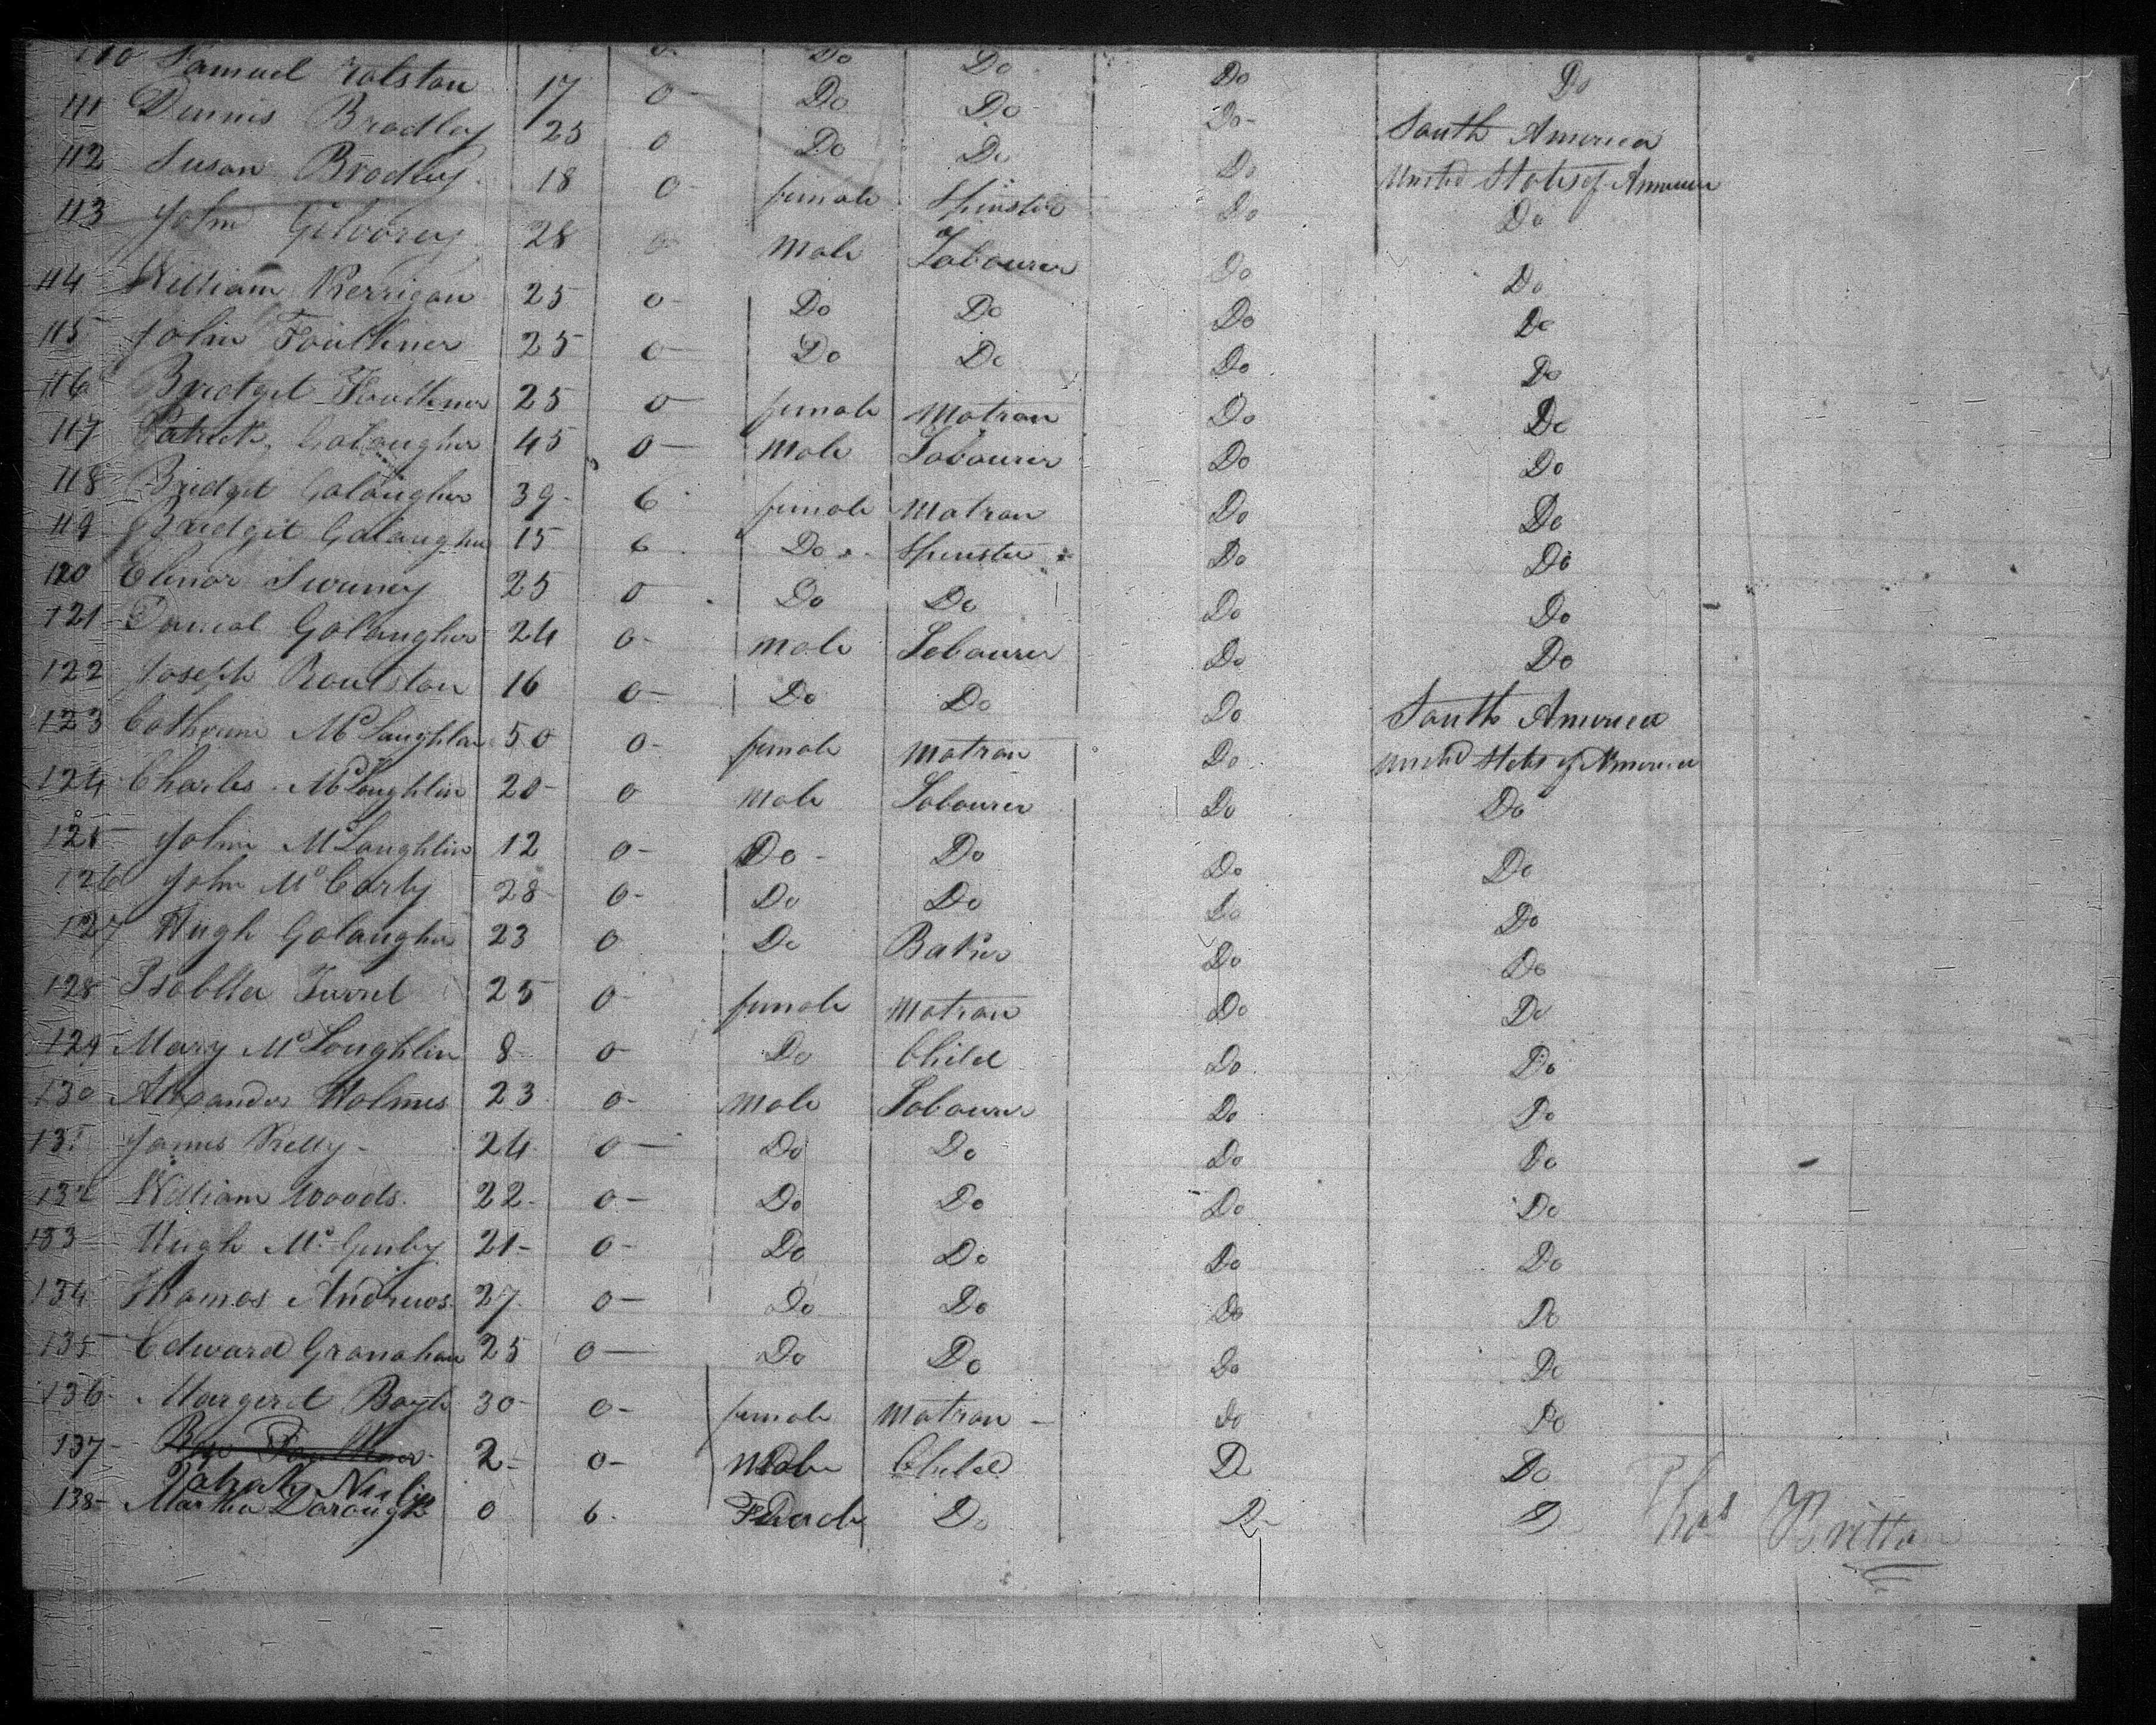 110 Samuel Rolston 17 0 Do Do Do Do
111 Dennis Bradley 25 0 Do Do Do South America
112 Susan Bradley 18 0 female Spinster Do United States of America
113 John Gilvarey 28 0 Male Labourer Do Do
114 William Kerrigan 25 0 Do Do Do Do
115 John Foulkner 25 0 Do Do Do Do
116 Bridget Foulkner 25 0 female Matron Do Do
117 Patrick Galaugher 45 0 Male Labourer Do Do
118 Bridget Galaugher 39 6 female Matron Do Do
119 Bridget Galaugher 15 6 Do Spinster Do Do
120 Elinor Sweeney 25 0 Do Do Do Do
121 Daniel Galaugher 24 0 Male Labourer Do Do
122 Joseph Roulston 16 0 Do Do Do South America
123 Catherine McLaughlin 50 0 female Matron Do United States of America
124 Charles McLoughlin 20 0 Male Labourer Do Do
125 John McLaughlin 12 0 Do Do Do Do
126 John McCarty 28 0 Do Do Do Do
127 Hugh Galaugher 23 0 Do Baker Do Do
128 Isoblla 25 0 female Matron Do Do
129 Mary McLoughlin 8 0 Do Child Do Do
130 Alexander Holmes 23 0 Male Labourer Do Do
131 James Kelly 24 0 Do Do Do Do
132 William Woods 22 0 Do Do Do Do
133 Hugh McGinly 21 0 Do Do Do Do
134 Thomas Andrews 27 0 Do Do Do Do
135 Edward Granahan 25 0 Do Do Do Do
136 Margeret Boyle 30 0 female Matron Do Do
137 2 0 Male Child Do Do
138 Martha Darough 0 6 Female Do Do Do
Thos Britton